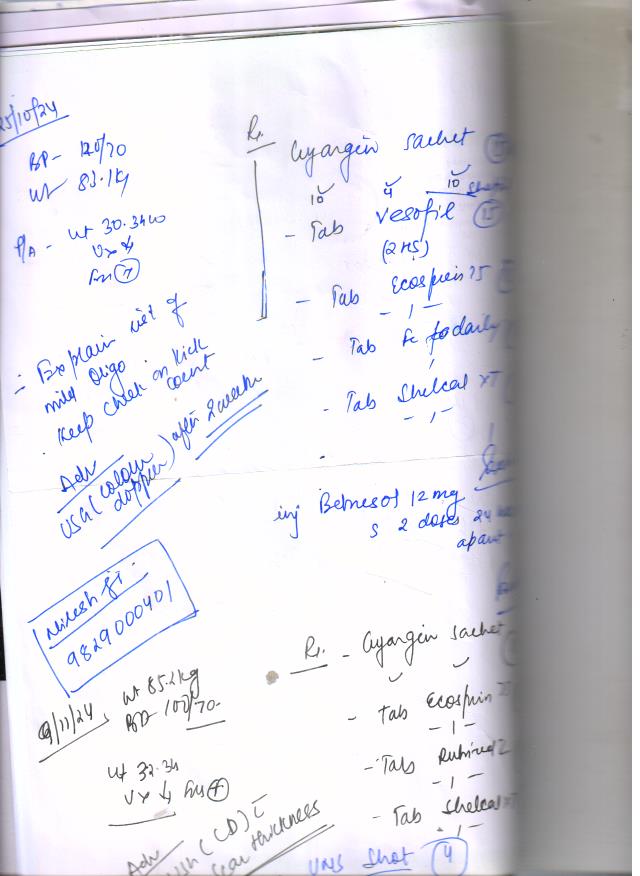 25/10/24
BP- 120/70
Wt 83.1kg
P/A - Ut 30.34w
Vx
FHS +
Explain
mild oligo
Keep check on kick
count
Adv
USG (colour
doppler) after 2 weeks
Rx.
Gyargin sachet
10 4 10
- Tab Vesofil 15
(2 HS)
- Tab Ecosprin 75
- 1 -
- Tab Fe daily
- Tab Shelcal XT
- 1 -
inj Betnesol 12 mg
2 doses 24
apart
9829000401
9/11/24
Wt 85.2kg
BP 100/70
Ut 32.34
Vx FHS +
Adv
(CD) c
scar thickness
Rx. - Gyargin sachet
- Tab Ecosprin
- 1 -
- Tab
- 1 -
- Tab Shelcal XT
- 1 -
Shot 4